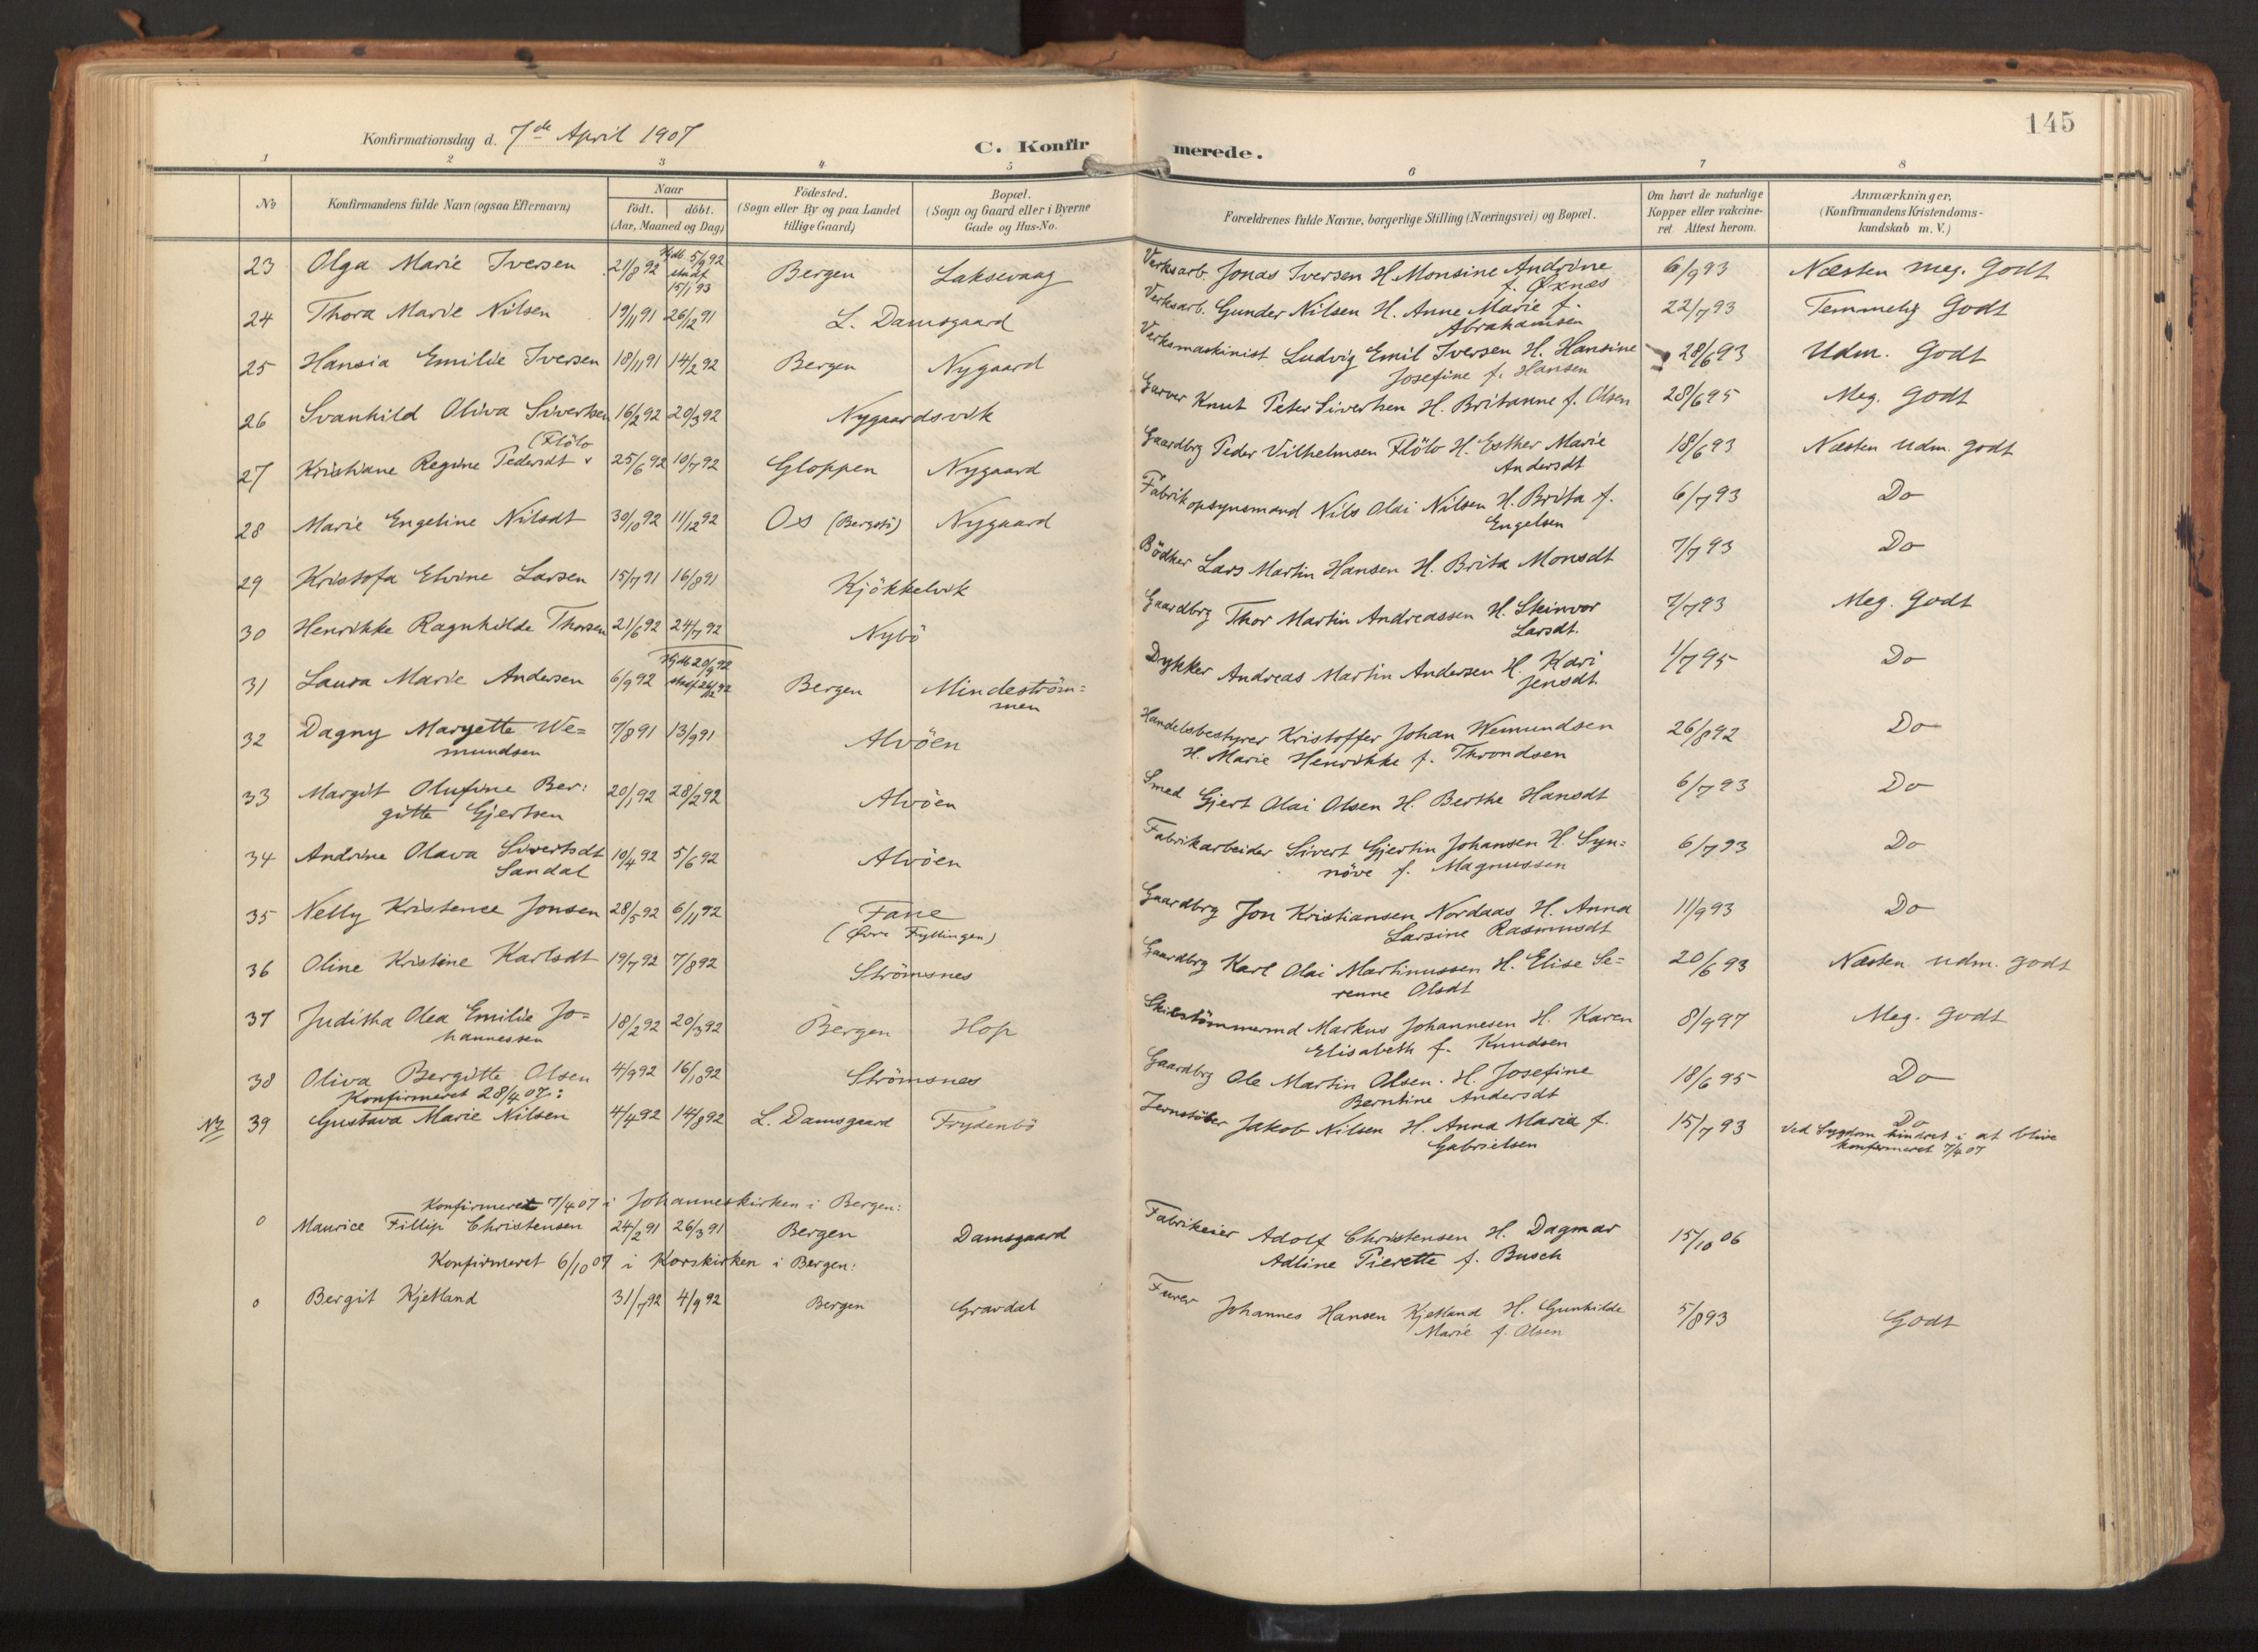 145
Konfirmationsdag d. 7de April 1907
C. Konfirmerede.
1 2 3 4 5 6 7 8
No
Konfirmandens fulde Navn (ogsaa Efternavn)
Naar
födt. döbt.
(Aar, Maaned og Dag)
Födested.
(Sogn eller By og paa Landet
tillige Gaard)
Bopæl.
(Sogn og Gaard eller i Byerne
Gade og Hus-No.
Forældrenes fulde Navne, borgerlige Stilling (Næringsvei) og Bopæl.
Om havt de naturlige
Kopper eller vakcine-
ret. Attest herom.
Anmærkninger,
(Konfirmandens Kristendoms-
kundskab m. V.)
Hjdb. 5/9 92
23 Olga Marie Iversen 21/8 92 stadf. 15/1 93 Bergen Laksevaag Verksarb. Jonas Iversen H. Monsine Andrine 6/9 93 Næsten meg. Godt
f. Øxnes
24 Thora Marie Nilsen 19/11 91 26/12 91 L. Damsgaard Verksarb. Gunder Nilsen H. Anne Marie f. 22/7 93 Temmelig Godt
Abrahamsen
25 Hansia Emilie Iversen 18/11 91 14/2 92 Bergen Nygaard Verksmaskinist Ludvig Emil Iversen H. Hansine 28/6 93 Udm. Godt
Josefine f. Hansen
26 Svanhild Oliva Sivertsen 16/2 92 20/3 92 Nygaardsvik Garver Knut Peter Sivertsen H. Britanne f. Olsen 28/6 95 Meg. Godt
(Flölo
27 Kristiane Regine Pedersdt 25/6 92 10/7 92 Gloppen Nygaard Gaardbrg Peder Vilhelmsen Flölo H. Esther Marie 18/6 93 Næsten udm. godt
Andersdt
28 Marie Engeline Nilsdt 30/10 92 11/12 92 Os (Bergsti) Nygaard Fabrikopsynsmand Nils Olai Nilsen H. Brita f. 6/7 93 Do
Engelsen
29 Kristofa Elvine Larsen 15/7 91 16/8 91 Kjökkelvik Bödker Lars Martin Hansen H. Brita Monsdt 7/7 93 Do
30 Henrikke Ragnhilde Thorsen 21/6 92 24/7 92 Nybö Gaardbrg Thor Martin Andreassen H. Steinvor 7/7 93 Meg. Godt
Larsdt.
Hjdb 20/9 92
31 Laura Marie Andersen 6/9 92 stadf. 26/12 92 Bergen Mindeström= Dykker Andreas Martin Andersen H. Kari 1/7 95 Do
men Jensdt.
32 Dagny Maryette We= 7/8 91 13/9 91 Alvöen Handelsbestyrer Kristoffer Johan Wemundsen 26/8 92 Do
mundsen H. Marie Henrikke f. Throndsen
33 Margit Olufine Ber: 20/1 92 28/2 92 Alvöen Smed Gjert Olai Olsen H. Berthe Hansdt 6/7 93 Do
gitte Gjertsen
34 Andrine Olava Sivertsdt 10/4 92 5/6 92 Alvöen Fabrikarbeider Sivert Gjertin Johansen H. Syn= 6/7 93 Do
Sandal növe f. Magnussen
35 Nelly Kristence Jonsen 28/5 92 6/11 92 Fane Gaardbrg Jon Kristiansen Nordaas H. Anna 11/9 93 Do
(Övre Fyllingen) Larsine Rasmusdt
36 Oline Kristine Karlsdt 19/7 92 7/8 92 Strömsnes Gaardbrg Karl Olai Martinussen H. Elise Se= 20/6 93 Næsten udm. godt
renne Olsdt
37 Juditha Olea Emilie Jo= 18/2 92 20/3 92 Bergen Hop Skibstömmermd Markus Johannesen H. Karen 8/9 97 Meg. Godt
hannessen Elisabeth f. Knudsen
38 Oliva Bergitte Olsen 4/9 92 16/10 92 Strömsnes Gaardbrg Ole Martin Olsen. H. Josefine 18/6 95 Do
Berntine Andersdt
Konfirmeret 28/4 07:
39 Gustava Marie Nilsen 4/4 92 14/8 92 L. Damsgaard Frydenbö Jernstöber Jakob Nilsen H. Anna Maria f. 15/7 93 Do
Gabrielsen Ved Sygdom hindret i at blive
konfirmeret 7/4 07
Konfirmeret 7/4 07 i Johanneskirken i Bergen:
o Maurice Fillip Christensen 24/2 91 26/3 91 Bergen Damsgaard Fabrikeier Adolf Christensen H. Dagmar 15/10 06
Adline Pierette f. Busch
Konfirmeret 6/10 07 i Korskirken i Bergen:
o Bergit Kjetland 31/7 92 4/9 92 Bergen Gravdal Johannes Hansen Kjetland H. Gunhilde 5/8 93 Godt
Marie f. Olsen